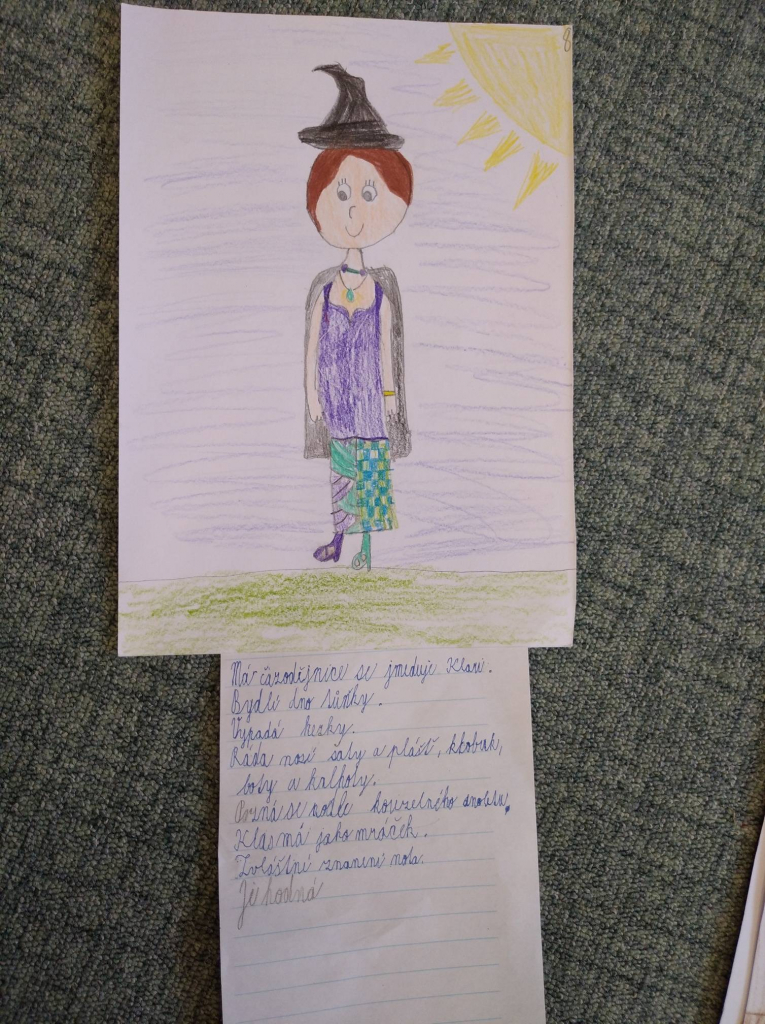 8
Má čázodějnice se jmeduje Klari.
Bydlí dno
Vypadá hezky.
Ráda nosí šaty a plášť, klobouk,
boty a kalhoty.
se podle kouzelného
Klas má jako mráček.
Zvláštní znamení
Je hodná